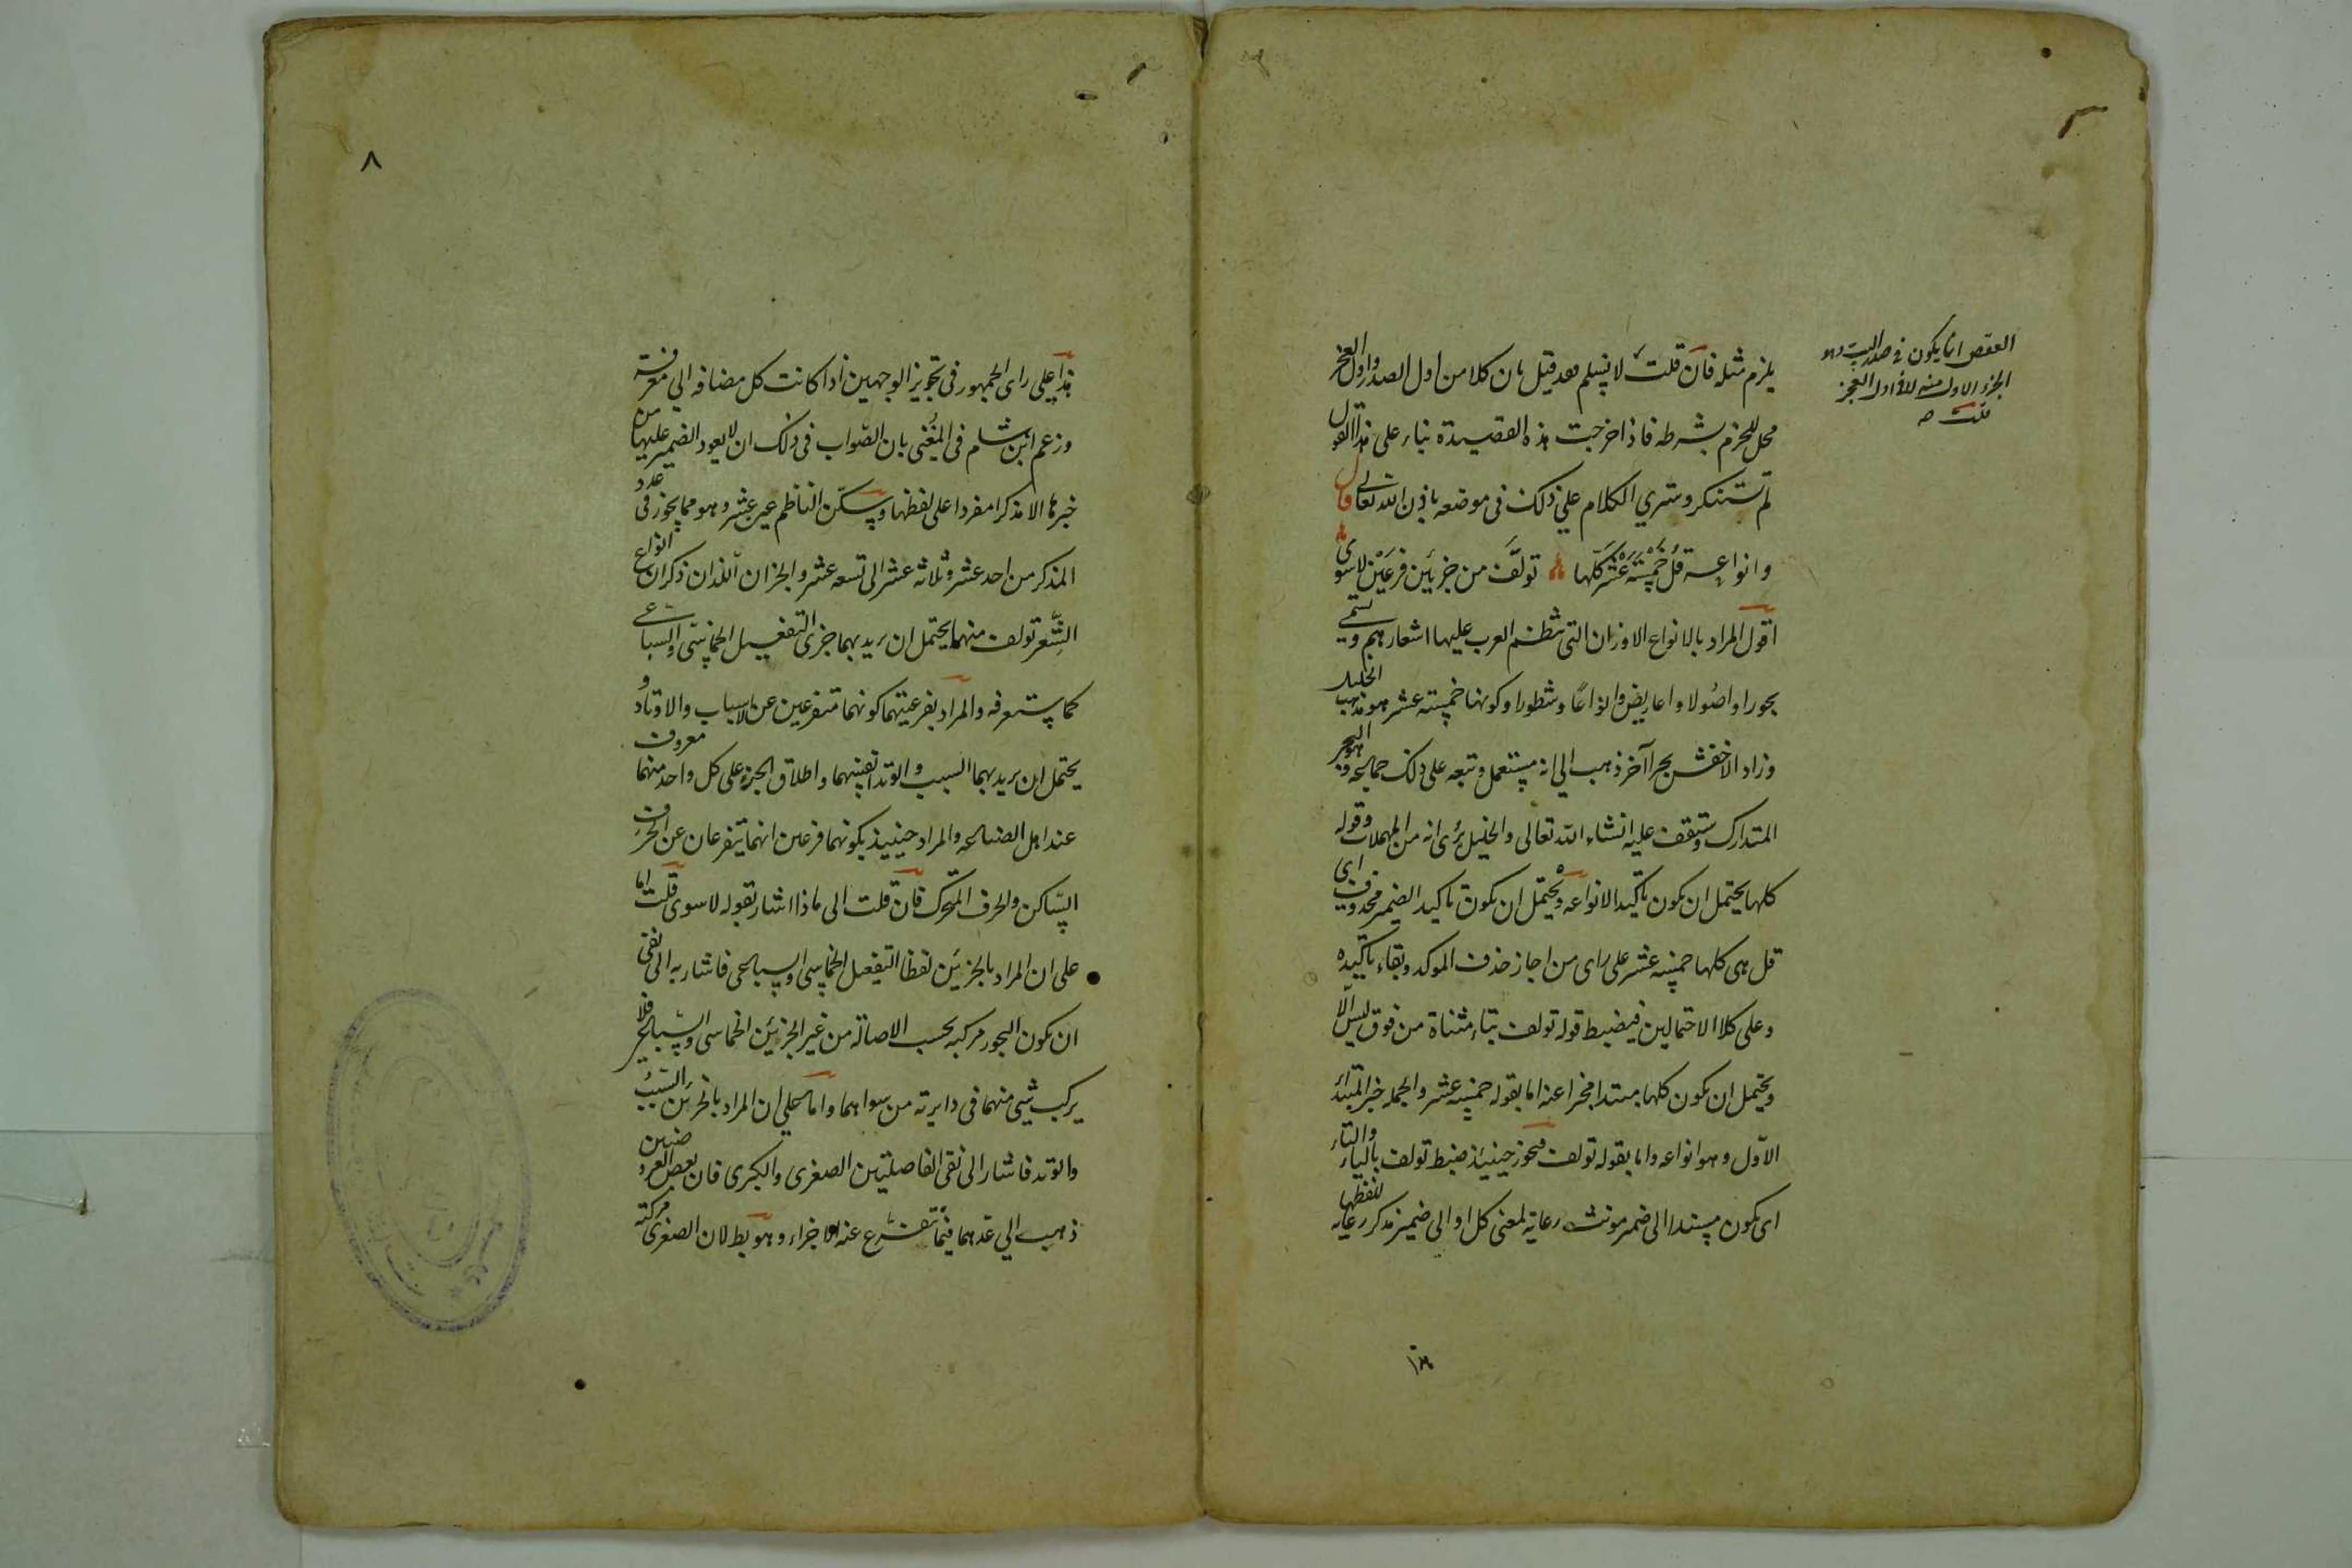 العقص انما يكون في صدر البيت وهو
الجزء الاول منه لا في اول العجز
قلت
يلزم مثله فان قلت لا يسلم فقد قيل بان كلا من اول الصدر واول العجز
محل للخرم بشرطه فاذا خرجت هذه القصيدة بناء على هذا القول
لم تستنكر وسترى الكلام على ذلك في موضعه باذن الله تعالى قال
وانواعه قل خمسة عشر كلها تولف من جزئين فرعين لا سوى
اقول المراد بالانواع الاوزان التي نظم العرب عليها اشعارهم وتسمى
بحورا واصولا واعاريض وانواعا وشطورا وكونها خمسة عشر هو مذهب الخليل
وزاد الاخفش بحرا آخر ذهب الى انه مستعمل وتبعه على ذلك جماعة وهو البحر
المتدارك وستقف عليه انشاء الله تعالى والخليل يرى انه من المهملات وقوله
كلها يحتمل ان يكون تاكيدا لانواعه ويحتمل ان يكون تاكيد الضمير محذوف اى
قل هى كلها خمسة عشر على راى من اجاز حذف الموكد وبقاء تاكيده
وعلى كلا الاحتمالين فيضبط قوله تولف بتاء مثناة من فوق ليس الا
ويحتمل ان يكون كلها مبتدا مخبرا عنه اما بقوله خمسة عشر والجملة خبر المبتدأ
الاول وهو انواعه واما بقوله تولف فيجوز حينئذ ضبط تولف بالياء والتاء
اى يكون مسندا الى ضمير مونث رعاية لمعنى كل او الى ضمير مذكر رعاية للفظها
٨
هذا على راى الجمهور فى تجويز الوجهين اذا كانت كل مضافه الى معرفة
وزعم ابن هشام فى المغنى بان الصواب فى ذلك ان لا يعود الضمير عليها من
خبرها الا مذكرا مفردا على لفظها وسكن الناظم عين عشر وهو مما يجوز فى عدد
المذكر من احد عشر وثلاثه عشر الى تسعه عشر والجزان اللذان ذكر ان انواع
الشعر تولف منهما يحتمل ان يريد بهما جزى التفعيل الخماسى والسباعى
كما ستعرفه والمراد بفرعيتهما كونهما متفرعين عن الاسباب والاوتاد و
يحتمل ان يريد بهما السبب والوتد انفسهما واطلاق الجزء على كل واحد منهما معروف
عند اهل الصناعه والمراد حينئذ بكونهما فرعين انهما يتفرعان عن الحرف
الساكن والحرف المتحرك فان قلت الى ماذا اشار بقوله لا سوى قلت اما
على ان المراد بالجزئين لفظا التفعيل الخماسى والسباعى فاشار به الى نفى
ان يكون البحور مركبه بحسب الاصالة من غير الجزئين الخماسى والسباعى فلا
يركب شيى منهما فى دايرته من سواهما واما على ان المراد بالجزئين السبب
والوتد فاشار الى نفى الفاصلتين الصغرى والكبرى فان بعض العروضيين
ذهب الى عدهما فيما تتفرع عنه الاجزاء وهو بط لان الصغرى مركبة